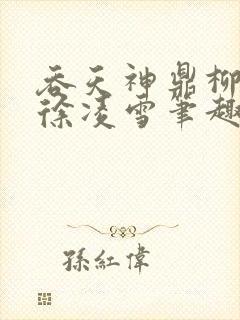 吞天神鼎柳
徐凌雪笔趣
孫紅偉